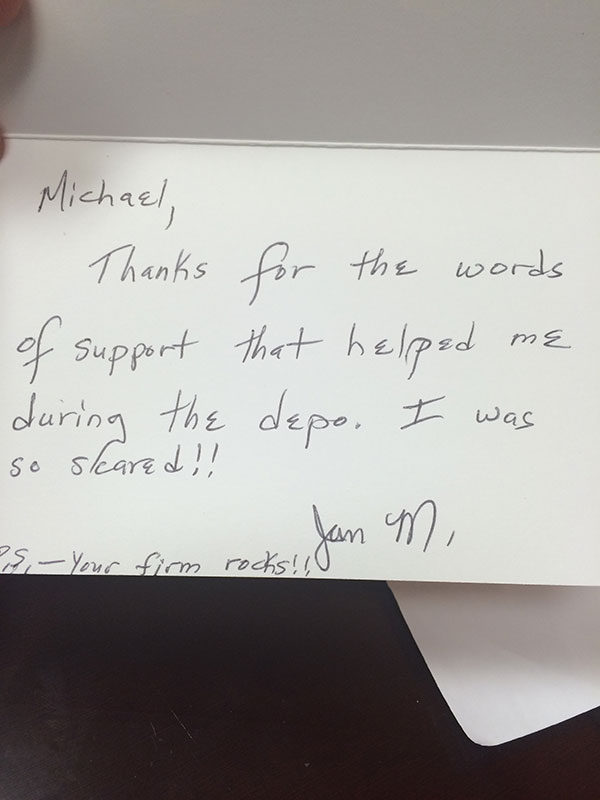 Michael,
Thanks for the words
of support that helped me
during the depo. I was
so scared!!
Jan M.
P.S. – Your firm rocks!!